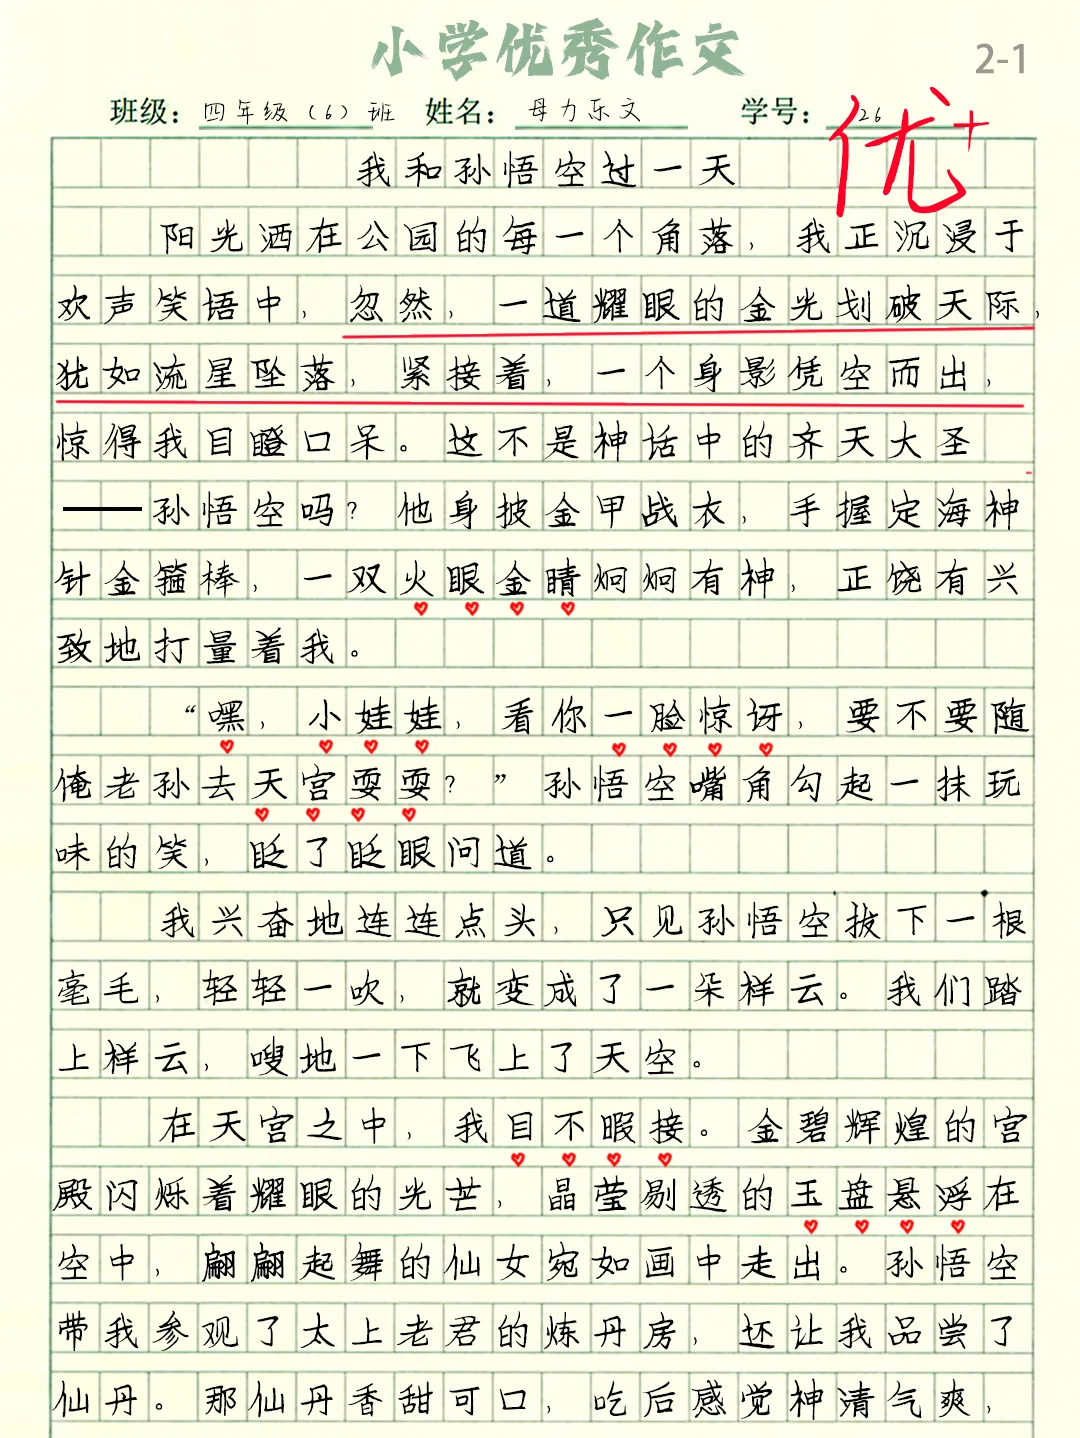 小学优秀作文
2-1
班级：四年级（6）班 姓名：母力乐文 学号：26
优+
我和孙悟空过一天
阳光洒在公园的每一个角落，我正沉浸于
欢声笑语中，忽然，一道耀眼的金光划破天际，
犹如流星坠落，紧接着，一个身影凭空而出，
惊得我目瞪口呆。这不是神话中的齐天大圣
——孙悟空吗？他身披金甲战衣，手握定海神
针金箍棒，一双火眼金睛炯炯有神，正饶有兴
致地打量着我。
“嘿，小娃娃，看你一脸惊讶，要不要随
俺老孙去天宫耍耍？”孙悟空嘴角勾起一抹玩
味的笑，眨了眨眼问道。
我兴奋地连连点头，只见孙悟空拔下一根
毫毛，轻轻一吹，就变成了一朵祥云。我们踏
上祥云，嗖地一下飞上了天空。
在天宫之中，我目不暇接。金碧辉煌的宫
殿闪烁着耀眼的光芒，晶莹剔透的玉盘悬浮在
空中，翩翩起舞的仙女宛如画中走出。孙悟空
带我参观了太上老君的炼丹房，还让我品尝了
仙丹。那仙丹香甜可口，吃后感觉神清气爽，